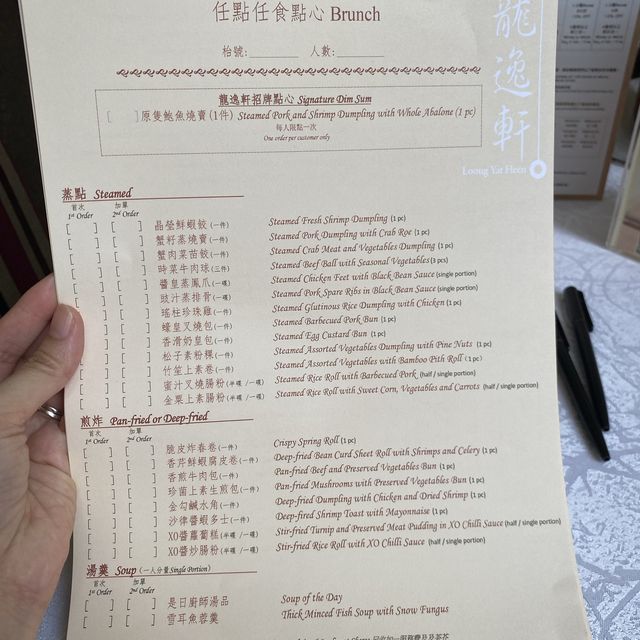 任點任食點心 Brunch
枱號:________ 人數:________
龍逸軒招牌點心 Signature Dim Sum
[ ] 原隻鮑魚燒賣 (1件) Steamed Pork and Shrimp Dumpling with Whole Abalone (1 pc)
每人限點一次
One order per customer only
龍逸軒
Loong Yat Heen
蒸點 Steamed
首次 加單
1st Order 2nd Order
[ ] [ ] 晶瑩鮮蝦餃 (一件) Steamed Fresh Shrimp Dumpling (1 pc)
[ ] [ ] 蟹籽蒸燒賣 (一件) Steamed Pork Dumpling with Crab Roe (1 pc)
[ ] [ ] 蟹肉菜苗餃 (一件) Steamed Crab Meat and Vegetables Dumpling (1 pc)
[ ] [ ] 時菜牛肉球 (三件) Steamed Beef Ball with Seasonal Vegetables (3 pcs)
[ ] [ ] 醬皇蒸鳳爪 (一碟) Steamed Chicken Feet with Black Bean Sauce (single portion)
[ ] [ ] 豉汁蒸排骨 (一碟) Steamed Pork Spare Ribs in Black Bean Sauce (single portion)
[ ] [ ] 瑤柱珍珠雞 (一件) Steamed Glutinous Rice Dumpling with Chicken (1 pc)
[ ] [ ] 蠔皇叉燒包 (一件) Steamed Barbecued Pork Bun (1 pc)
[ ] [ ] 香滑奶皇包 (一件) Steamed Egg Custard Bun (1 pc)
[ ] [ ] 松子素粉粿 (一件) Steamed Assorted Vegetables Dumpling with Pine Nuts (1 pc)
[ ] [ ] 竹笙上素卷 (一件) Steamed Assorted Vegetables with Bamboo Pith Roll (1 pc)
[ ] [ ] 蜜汁叉燒腸粉 (半碟 /一碟) Steamed Rice Roll with Barbecued Pork (half / single portion)
[ ] [ ] 金粟上素腸粉 (半碟 /一碟) Steamed Rice Roll with Sweet Corn, Vegetables and Carrots (half / single portion)
煎炸 Pan-fried or Deep-fried
首次 加單
1st Order 2nd Order
[ ] [ ] 脆皮炸春卷 (一件) Crispy Spring Roll (1 pc)
[ ] [ ] 香芹鮮蝦腐皮卷 (一件) Deep-fried Bean Curd Sheet Roll with Shrimps and Celery (1 pc)
[ ] [ ] 香煎牛肉包 (一件) Pan-fried Beef and Preserved Vegetables Bun (1 pc)
[ ] [ ] 珍菌上素生煎包 (一件) Pan-fried Mushrooms with Preserved Vegetables Bun (1 pc)
[ ] [ ] 金勾鹹水角 (一件) Deep-fried Dumpling with Chicken and Dried Shrimp (1 pc)
[ ] [ ] 沙律醬蝦多士 (一件) Deep-fired Shrimp Toast with Mayonnaise (1 pc)
[ ] [ ] XO醬蘿蔔糕 (半碟 /一碟) Stir-fried Turnip and Preserved Meat Pudding in XO Chilli Sauce (half / single portion)
[ ] [ ] XO醬炒腸粉 (半碟 /一碟) Stir-fried Rice Roll with XO Chilli Sauce (half / single portion)
湯羹 Soup (一人分量 Single Portion)
首次 加單
1st Order 2nd Order
[ ] [ ] 是日廚師湯品 Soup of the Day
[ ] [ ] 雪耳魚蓉羹 Thick Minced Fish Soup with Snow Fungus